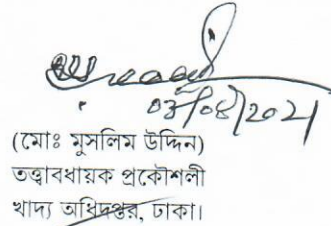 03/08/2021
(মোঃ মুসলিম উদ্দিন)
তত্ত্বাবধায়ক প্রকৌশলী
খাদ্য অধিদপ্তর, ঢাকা।